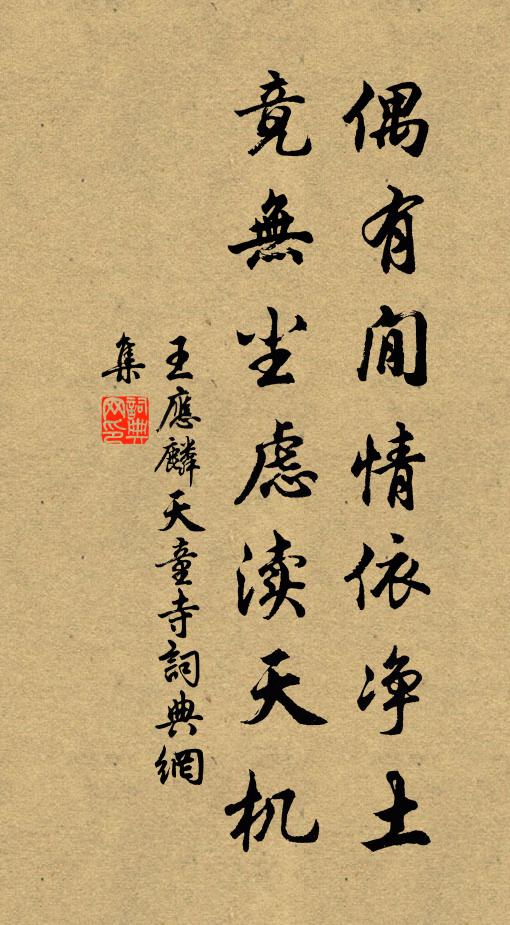 偶有闲情依净土
竟無尘慮渎天机
王應麟天童寺詞典網
集
詞典網印